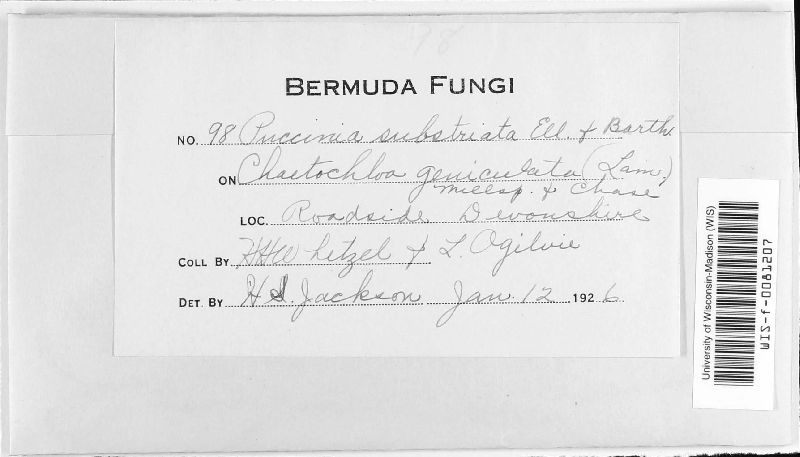 98
BERMUDA FUNGI
NO. 98 Puccinia substriata Ell. & Barth.
ON Chaetochloa geniculata (Lam.)
Millsp. & Chase
LOC. Roadside Devonshire
COLL BY HHWhetzel & L. Ogilvie
DET. BY H S. Jackson Jan. 12 1926
University of Wisconsin-Madison (WIS)
WIS-f-0081207